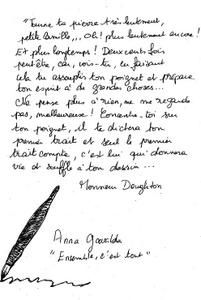 "Tourne ta pierre très lentement,
petite Camille,,, oh! plus lentement encore!
Et plus longtemps! Deux cents fois
peut être, car, vois-tu, en faisant
cela tu assouplis ton poignet et prépare
ton esprit à de grandes choses...
Ne pense plus à rien, ne me regarde
pas, malheureuse! Concentre-toi sur
ton poignet, il te dictera ton
premier trait et seul le premier
trait compte, c'est lui qui donnera
vie et souffle à ton dessin...
Monsieur Doughton
Anna Gavalda
"Ensemble, c'est tout"